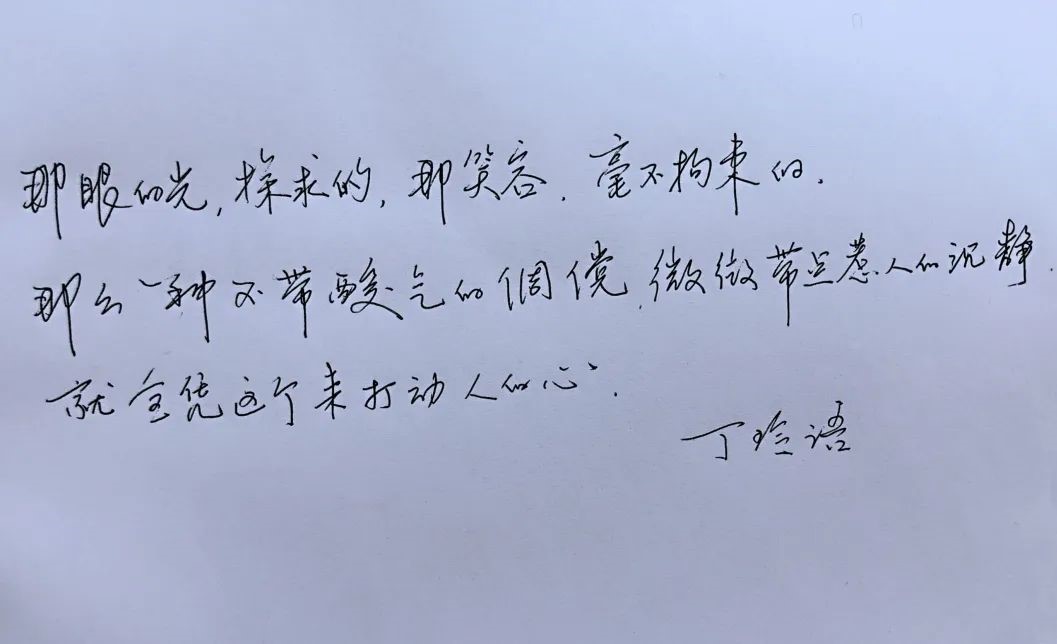 那眼的光,探求的,那笑容,毫不拘束的.
那么一种不带酸气的倜傥,微微带点惹人的沉静.
就全凭这个来打动人的心.
丁玲语